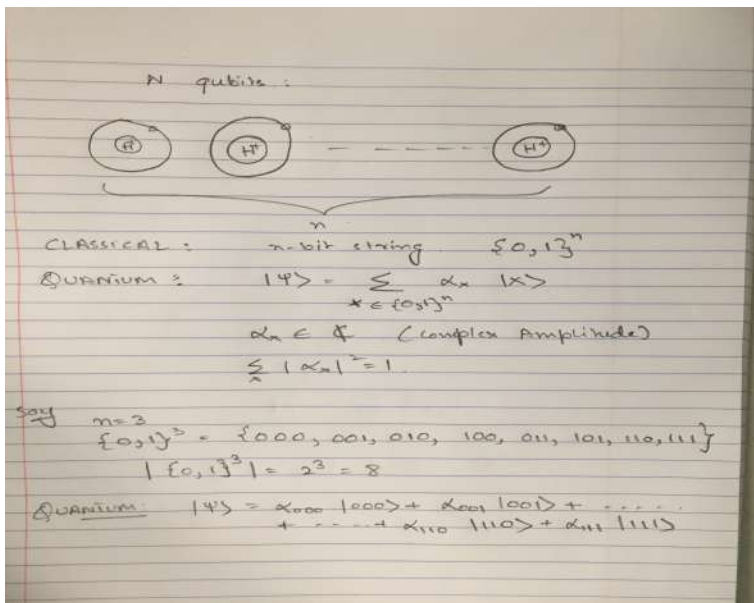 N qubits :
H+ H+ - - - - - - H+
n
CLASSICAL : n-bit string {0,1}ⁿ
QUANTUM : |Ψ> = Σ αₓ |x>
x ∈ {0,1}ⁿ
αₓ ∈ ℂ (complex Amplitude)
Σₓ |αₓ|² = 1
Say n=3
{0,1}³ = {000, 001, 010, 100, 011, 101, 110, 111}
| {0,1}³| = 2³ = 8
QUANTUM: |Ψ> = α₀₀₀ |000> + α₀₀₁ |001> + ......
+ ----+ α₁₁₀ |110> + α₁₁₁ |111>